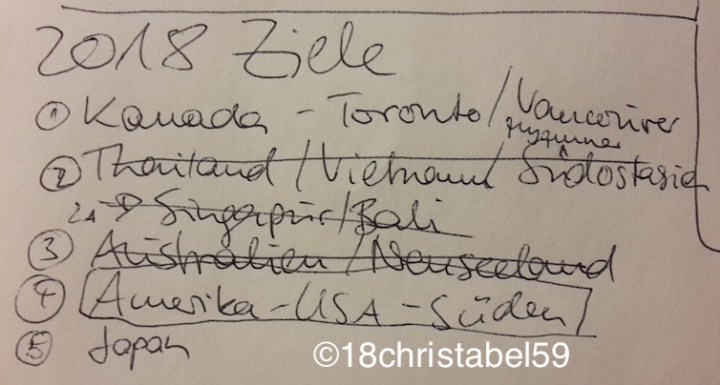 2018 Ziele
① Kanada - Toronto/Vancouver
② Thailand/Vietnam/Südostasien
2A → Singapur/Bali
③ Australien/Neuseeland
④ Amerika-USA-Süden
⑤ Japan
©18christabel59